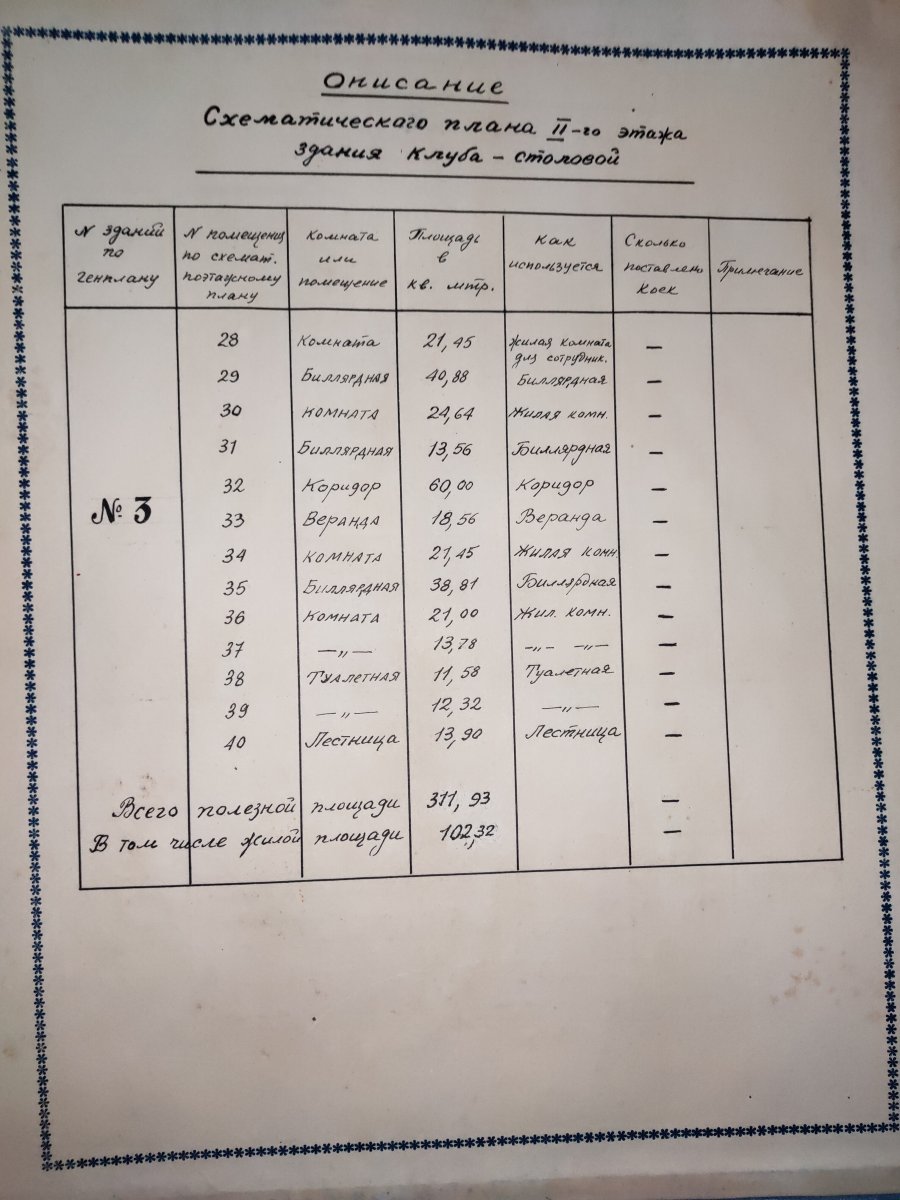 Описание
Схематического плана II-го этажа
здания клуба – столовой
N зданий по генплану | N помещений по схемат. поэтажному плану | Комната или помещение | Площадь в кв. мтр. | Как используется | Сколько поставлено коек | Примечание
28 Комната 21,45 Жилая комната для сотрудник. —
29 Биллярдная 40,88 Биллярдная —
30 Комната 24,64 Жилая комн. —
31 Биллярдная 13,56 Биллярдная —
32 Коридор 60,00 Коридор —
№ 3
33 Веранда 18,56 Веранда —
34 Комната 21,45 Жилая комн —
35 Биллярдная 38,81 Биллярдная —
36 Комната 21,00 Жил. комн. —
37 —„— 13,78 —„— —„— —
38 Туалетная 11,58 Туалетная —
39 —„— 12,32 —„— —
40 Лестница 13,90 Лестница —
Всего полезной площади 311,93 —
В том числе жилой площади 102,32 —